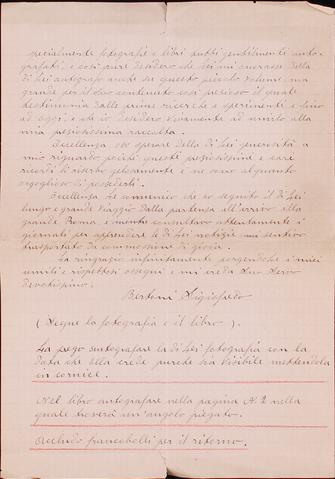 specialmente fotografie e libri tutti gentilmente auto-
grafati, e così pure desidero che Lei mi onorasse della
Di Lei autografo anche su questo piccolo volume, ma
grande per il suo contenuto così prezioso il quale
testimonia dalle prime ricerche e sperimenti e fino
ad oggi, e che io desidero vivamente ad unirlo alla
mia preziosissima raccolta.
Eccellenza oso sperare della Di Lei generosità a
mio riguardo poichè questi preziosissimi e care
ricordi li riserbo gelosamente e ne sono alquanto
orgoglioso di possederli.
Eccellenza Le comunico che ho seguito il Di Lei
lungo e grande viaggio dalla partenza all'arrivo alla
grande Roma e mentre consultavo attentamente i
giornali per apprendere le Di Lei notizie mi sentivo
trasportato da commozioni di gioia.
La ringrazio infinitamente porgendole i miei
umili e rispettosi ossequi e mi creda Suo Servo
Devotissimo.
Bertoni
(Segue la fotografia e il libro).
La prego autografare la Di Lei fotografia con la
data che Ella crede purchè sia visibile mettendola
in cornice.
Nel libro autografare nella pagina N. 2 nella
quale troverà un'angolo piegato.
Accludo francobolli per il ritorno.